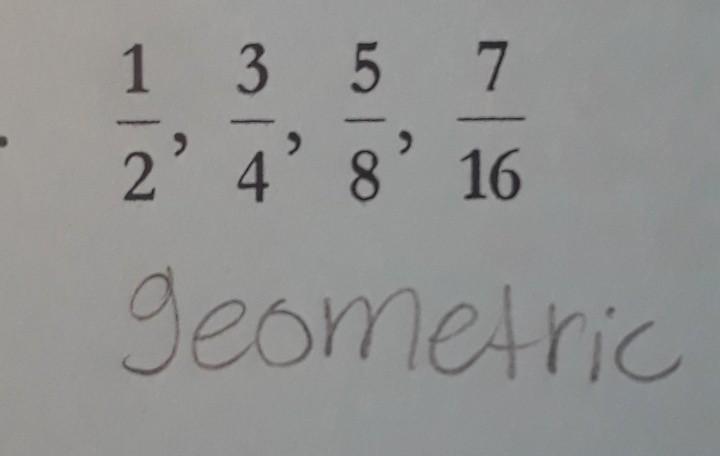 1/2, 3/4, 5/8, 7/16
geometric